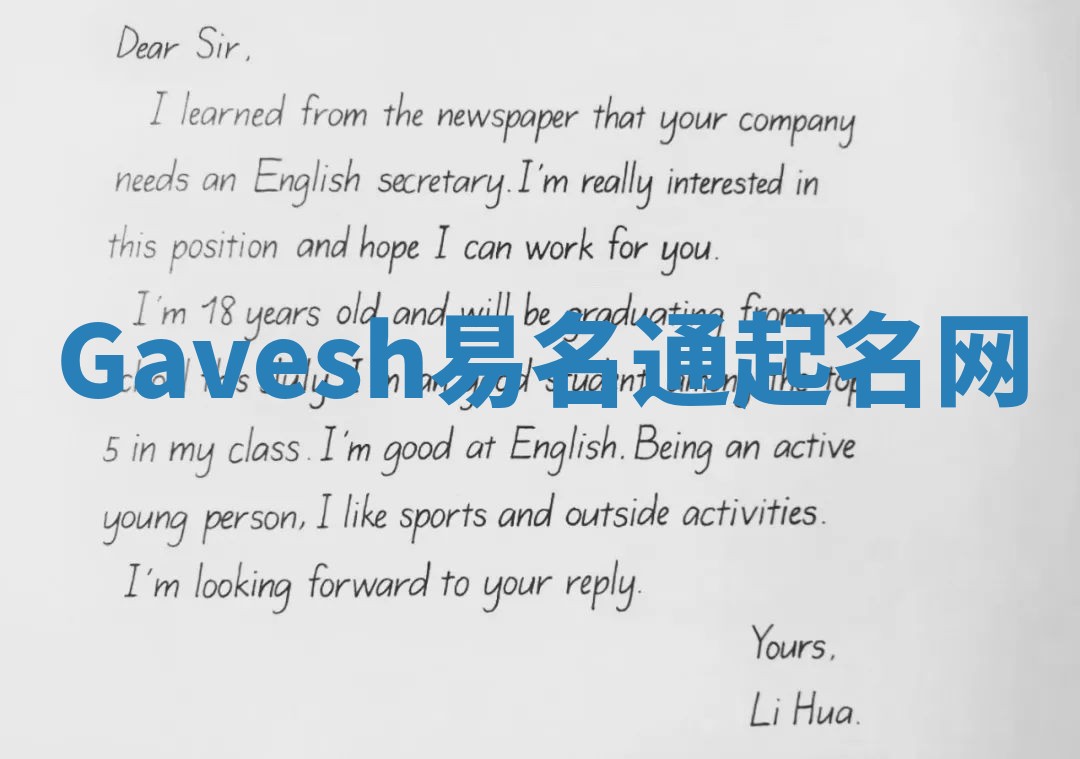 Dear Sir,
I learned from the newspaper that your company
needs an English secretary. I'm really interested in
this position and hope I can work for you.
I'm 18 years old and will be graduating from xx
Gavesh易名通起名网
school this July. I'm a good student among the top
5 in my class. I'm good at English. Being an active
young person, I like sports and outside activities.
I'm looking forward to your reply.
Yours,
Li Hua.